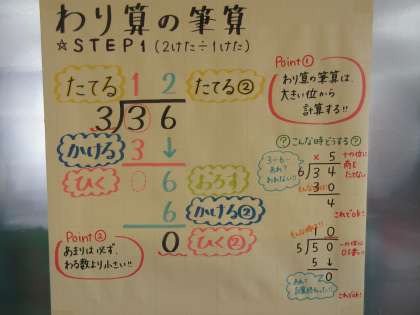 わり算の筆算
☆STEP1(2けた÷1けた)
たてる 1 2 たてる②
3 3 6
かける 3 ↓
ひく 0 6 おろす
6 かける②
0 ひく②
Point①
わり算の筆算は、
大きい位から
計算する!!
Point②
あまりは必ず、
わる数より小さい!!
?こんな時どうする?
× 5
6 3 4
3 0
4
十の位に
商を
たてない
3÷6…
あれ?
われない!!
これでOK!
1 0
5 5 0
5 ↓
0
一の位に
これでOK!